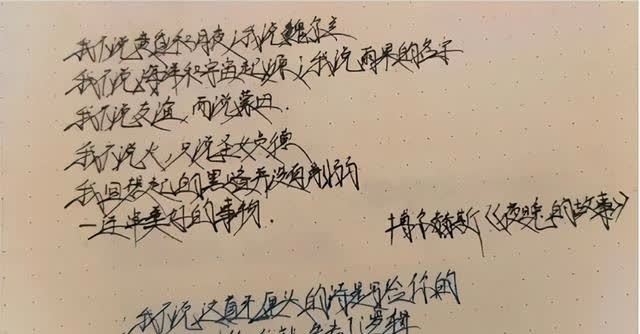 我不说黄昏和月夜；我说魏尔兰
我不说海洋和宇宙起源；我说雨果的名字
我不说友谊，而说蒙田.
我不说火，只说圣女贞德
我回想起的黑暗并没有削弱
一连串美好的事物.
博尔赫斯《夜晚的故事》
我不说这首无厘头的诗是写给你的